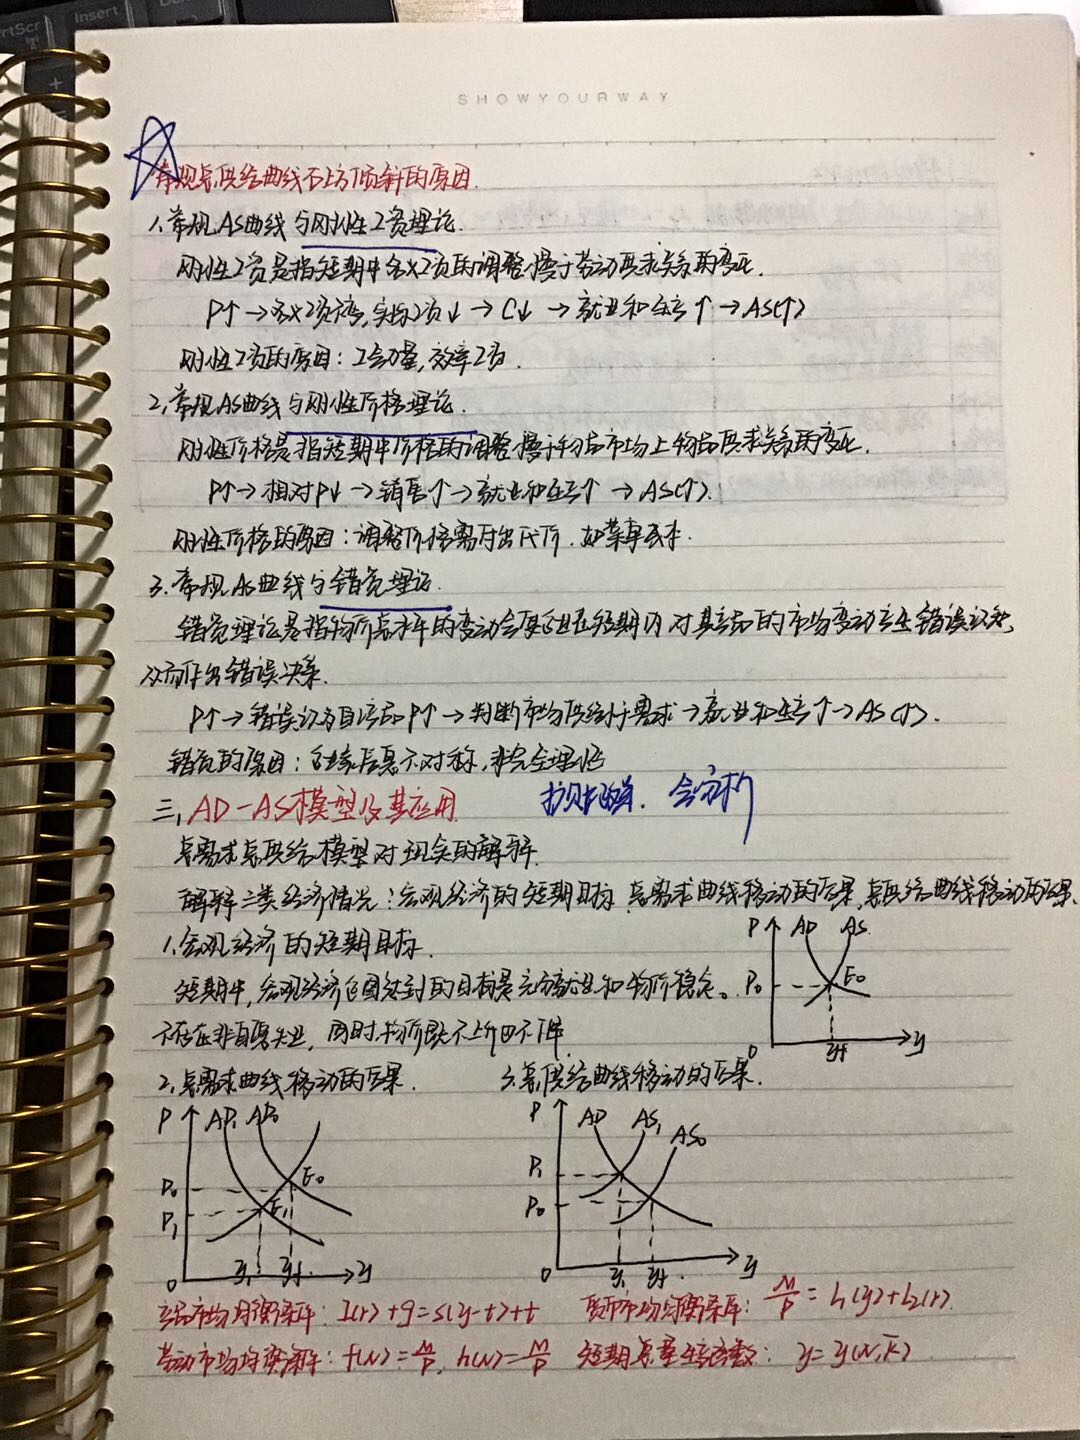 rtScr
Insert
SHOWYOURWAY
常规总供给曲线右上方倾斜的原因.
1.常规AS曲线与刚性工资理论.
刚性工资是指短期中名义工资的调整慢于劳动供求关系的变化.
P↑→名义工资不变,实际工资↓→C↓→就业和生产↑→AS(↑)
刚性工资的原因:工会力量,效率工资.
2.常规AS曲线与刚性价格理论.
刚性价格是指短期中价格的调整慢于物品市场上物品供求关系的变化.
P↑→相对P↓→销售↑→就业和生产↑→AS(↑).
刚性价格的原因:调整价格需付出代价.如菜单成本.
3.常规AS曲线与错觉理论.
错觉理论是指物价总水平的变动会使企业在短期内对其产品的市场变动产生错误认知,
从而作出错误决策.
P↑→错误认为自产品P↑→判断市场供给小于需求→就业和生产↑→AS(↑).
错觉的原因:信息不对称,非完全理性
三,AD-AS模型及其应用 会分析
总需求总供给模型对现实的解释.
解释三类经济情况:宏观经济的短期目标.总需求曲线移动的后果,总供给曲线移动的后果.
1.宏观经济的短期目标.
短期中,宏观经济企图达到的目标是充分就业和物价稳定。
不存在非自愿失业,同时,物价既不上升也不下降.
P AD AS
P₀ E₀
0 yf y
2.总需求曲线移动的后果. 3.总供给曲线移动的后果.
P AD₁ AD₀
P₀ E₀
P₁ E₁
0 y₁ yf y
P AD AS₁ AS₀
P₁
P₀
0 y₁ yf y
产品市场均衡条件: I(r)+g=s(y-t)+t 货币市场均衡条件: M/P=L₁(y)+L₂(r).
劳动市场均衡条件: f(N)=W/P, h(N)=W/P 短期总量生产函数: y=y(N,K̄)